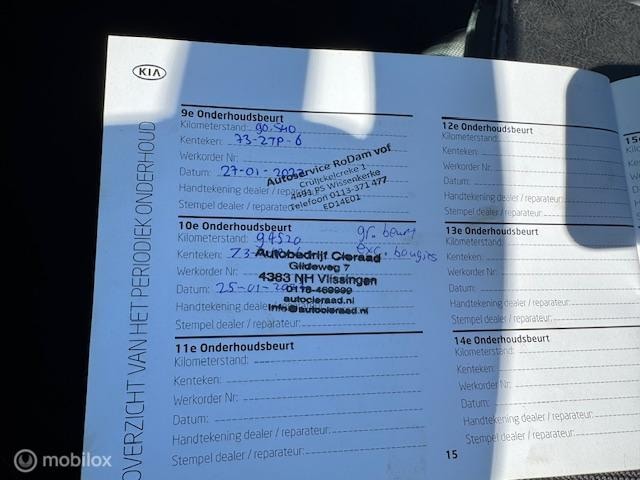 KIA
OVERZICHT VAN HET PERIODIEK ONDERHOUD
9e Onderhoudsbeurt
Kilometerstand: 90.540
Kenteken: 73-ZTP-6
Werkorder Nr:
Datum: 27-01-
Handtekening dealer /
Stempel dealer / reparateur:
Autoservice RoDam vof
Cruijckelcreke 1
4491 PS Wissenkerke
Telefoon 0113-371 477
ED14E01
10e Onderhoudsbeurt
Kilometerstand: 94520
gr. beurt
Kenteken:
exc. bougies
Werkorder
Datum: 25-01-
Handtekening dealer / reparateur:
Stempel dealer / reparateur:
Autobedrijf Cleraad
Gildeweg 7
4383 NH Vlissingen
0118-469999
autocleraad.nl
info@autocleraad.nl
11e Onderhoudsbeurt
Kilometerstand:
Kenteken:
Werkorder Nr:
Datum:
Handtekening dealer / reparateur:
Stempel dealer / reparateur:
12e Onderhoudsbeurt
Kilometerstand:
Kenteken:
Werkorder Nr:
Datum:
Handtekening dealer / reparateur:
Stempel dealer / reparateur:
13e Onderhoudsbeurt
Kilometerstand:
Kenteken:
Werkorder Nr:
Datum:
Handtekening dealer / reparateur:
Stempel dealer / reparateur:
14e Onderhoudsbeurt
Kilometerstand:
Kenteken:
Werkorder Nr:
Datum:
Handtekening dealer / reparateur:
Stempel dealer / reparateur:
15
mobilox